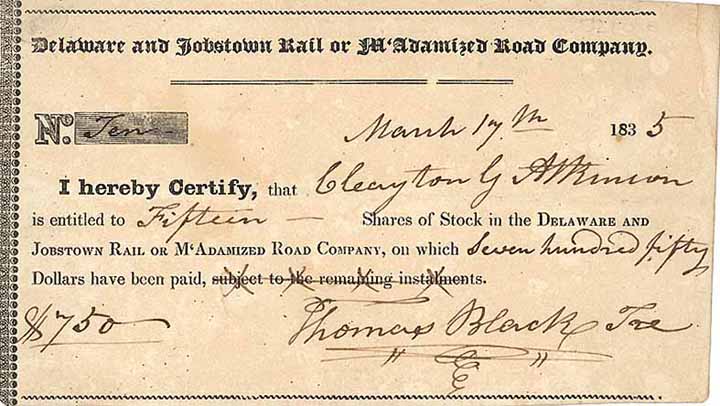 Delaware and Jobstown Rail or M'Adamized Road Company.
No. Ten
March 17th 1835
I hereby Certify, that Clayton G Atkinson
is entitled to Fifteen — Shares of Stock in the DELAWARE AND
JOBSTOWN RAIL OR M'ADAMIZED ROAD COMPANY, on which Seven hundred fifty
Dollars have been paid, subject to the remaining instalments.
$750 Thomas Black Tre